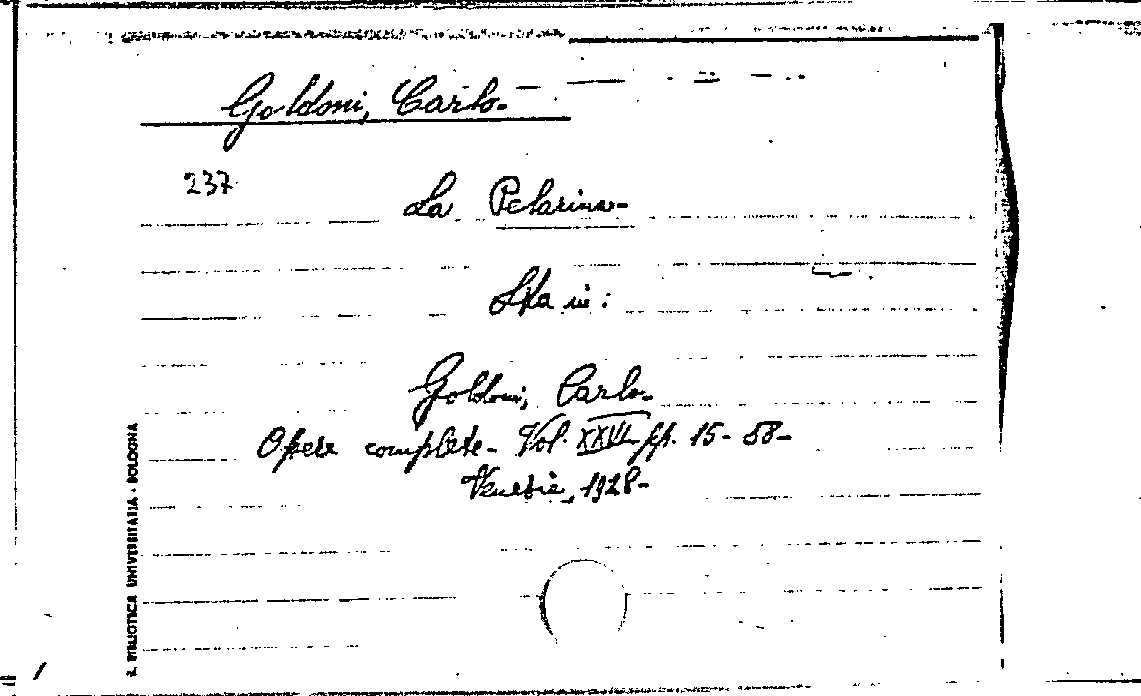 Goldoni, Carlo-
237
La Pelarina-
Sta in:
Goldoni, Carlo-
Opere complete- Vol. XXVII pp. 15-58-
Venezia, 1928-
R. BIBLIOTECA UNIVERSITARIA - BOLOGNA